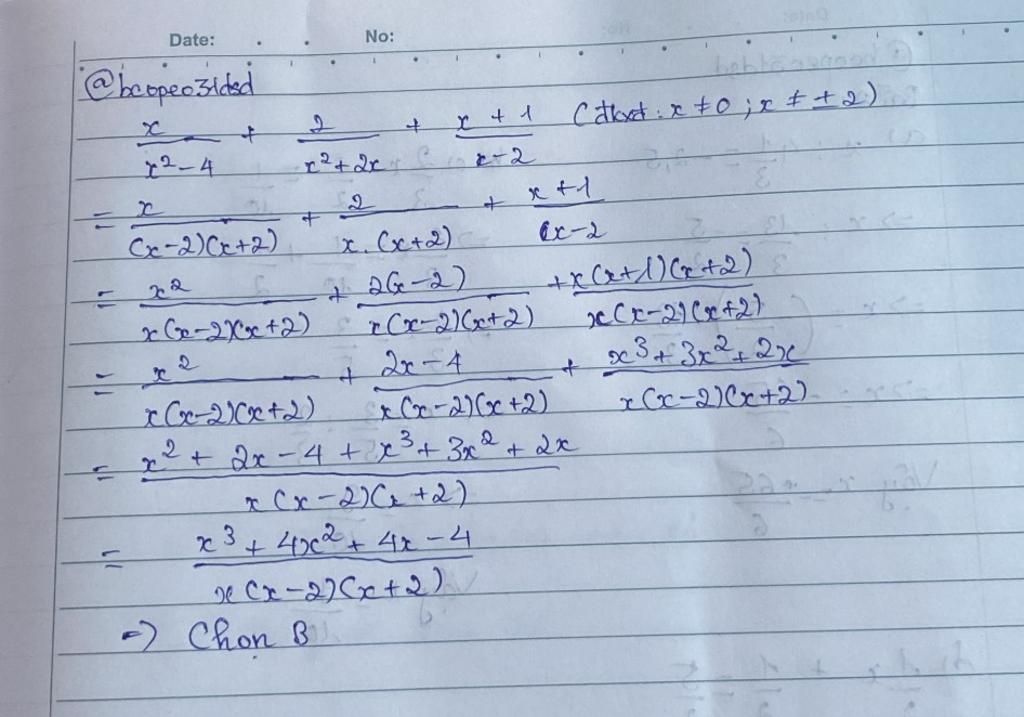 Date: No:
@bcopeo3ldsd
x/(x² - 4) + 2/(x² + 2x) + (x + 1)/(x - 2) (đkxđ: x ≠ 0; x ≠ ± 2)
= x/((x-2)(x+2)) + 2/(x.(x+2)) + (x+1)/(x-2)
= x²/(x(x-2)(x+2)) + 2(x-2)/(x(x-2)(x+2)) + x(x+1)(x+2)/(x(x-2)(x+2))
= x²/(x(x-2)(x+2)) + (2x-4)/(x(x-2)(x+2)) + (x³ + 3x² + 2x)/(x(x-2)(x+2))
= (x² + 2x - 4 + x³ + 3x² + 2x)/(x(x-2)(x+2))
= (x³ + 4x² + 4x - 4)/(x(x-2)(x+2))
=> Chon B